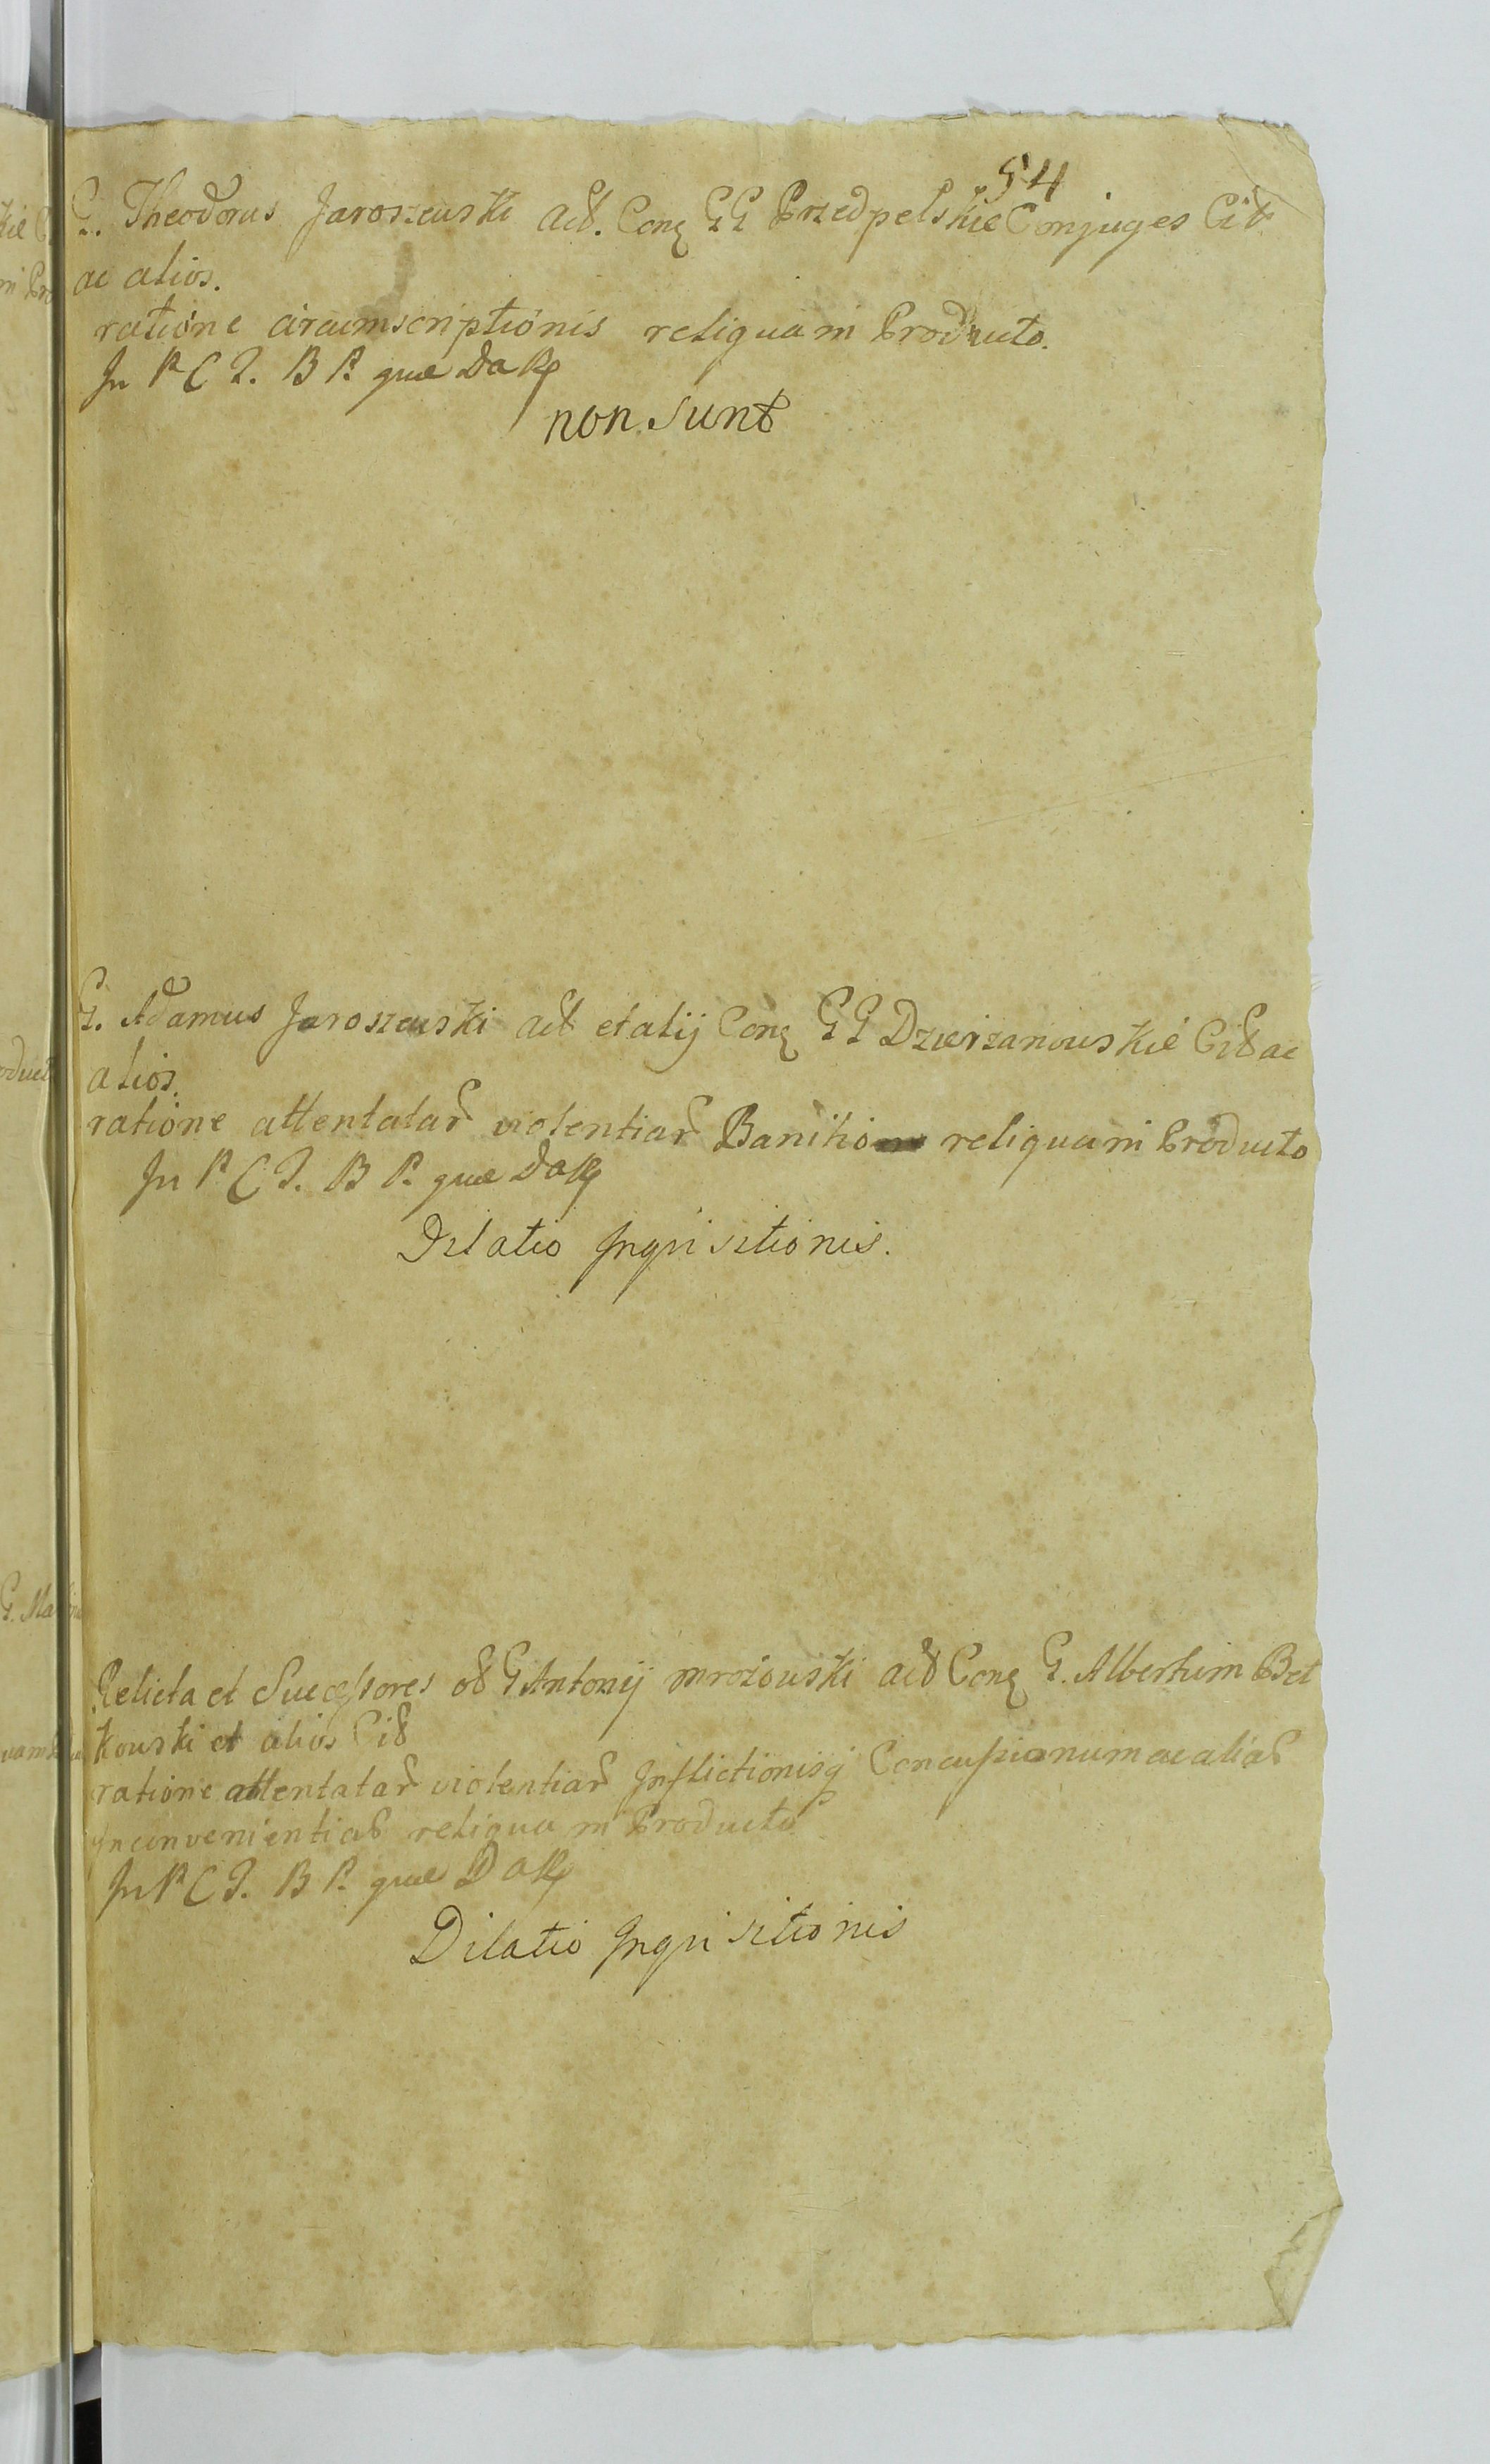 54
G. Theodorus Jaroszewski act. Conq GG Przedpelskie Conjuges Cit
ac alios.
ratione circumscriptionis reliquam Producto.
In P C J. B P. quae Da Rp
non sunt
G. Adamus Jaroszewski act et alij Conq GG Dzierzanowskie Cit ac
alios.
ratione attentatar violentiar Banitio reliquam Producto
In P C J. B P. quae Da Rp
Dilatio Inqvisitionis.
Relicta et Successores ol G Antonij Mrozowski act Conq G. Albertum Bet
kowski et alios Cit
ratione attentatar violentiar Inflictionisq Concussionum ac aliar
Inconvenientiar reliquam Producto
In P C J. B P. quae Da Rp
Dilatio Inqvisitionis